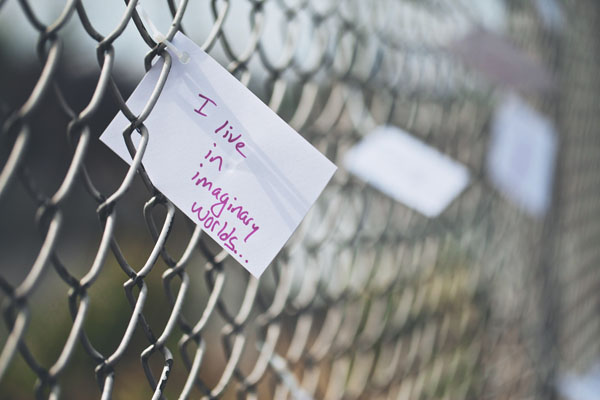 I live
in
imaginary
worlds...